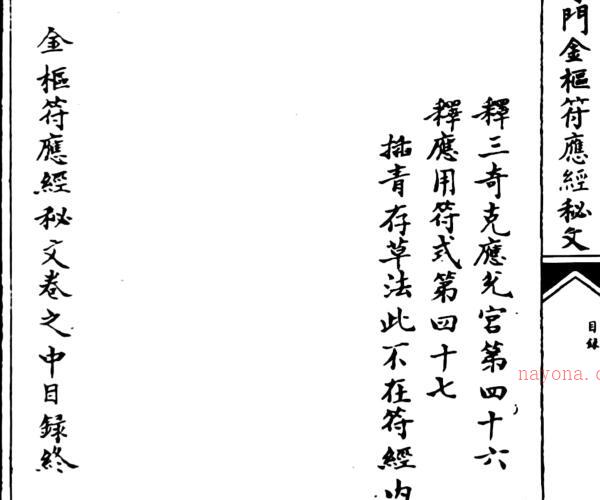 門金樞符應經秘文
目錄
釋三奇克應宮第四十六
釋應用符式第四十七
青存草法此不在符經内
金樞符應經秘文卷之中目録終
nayona.